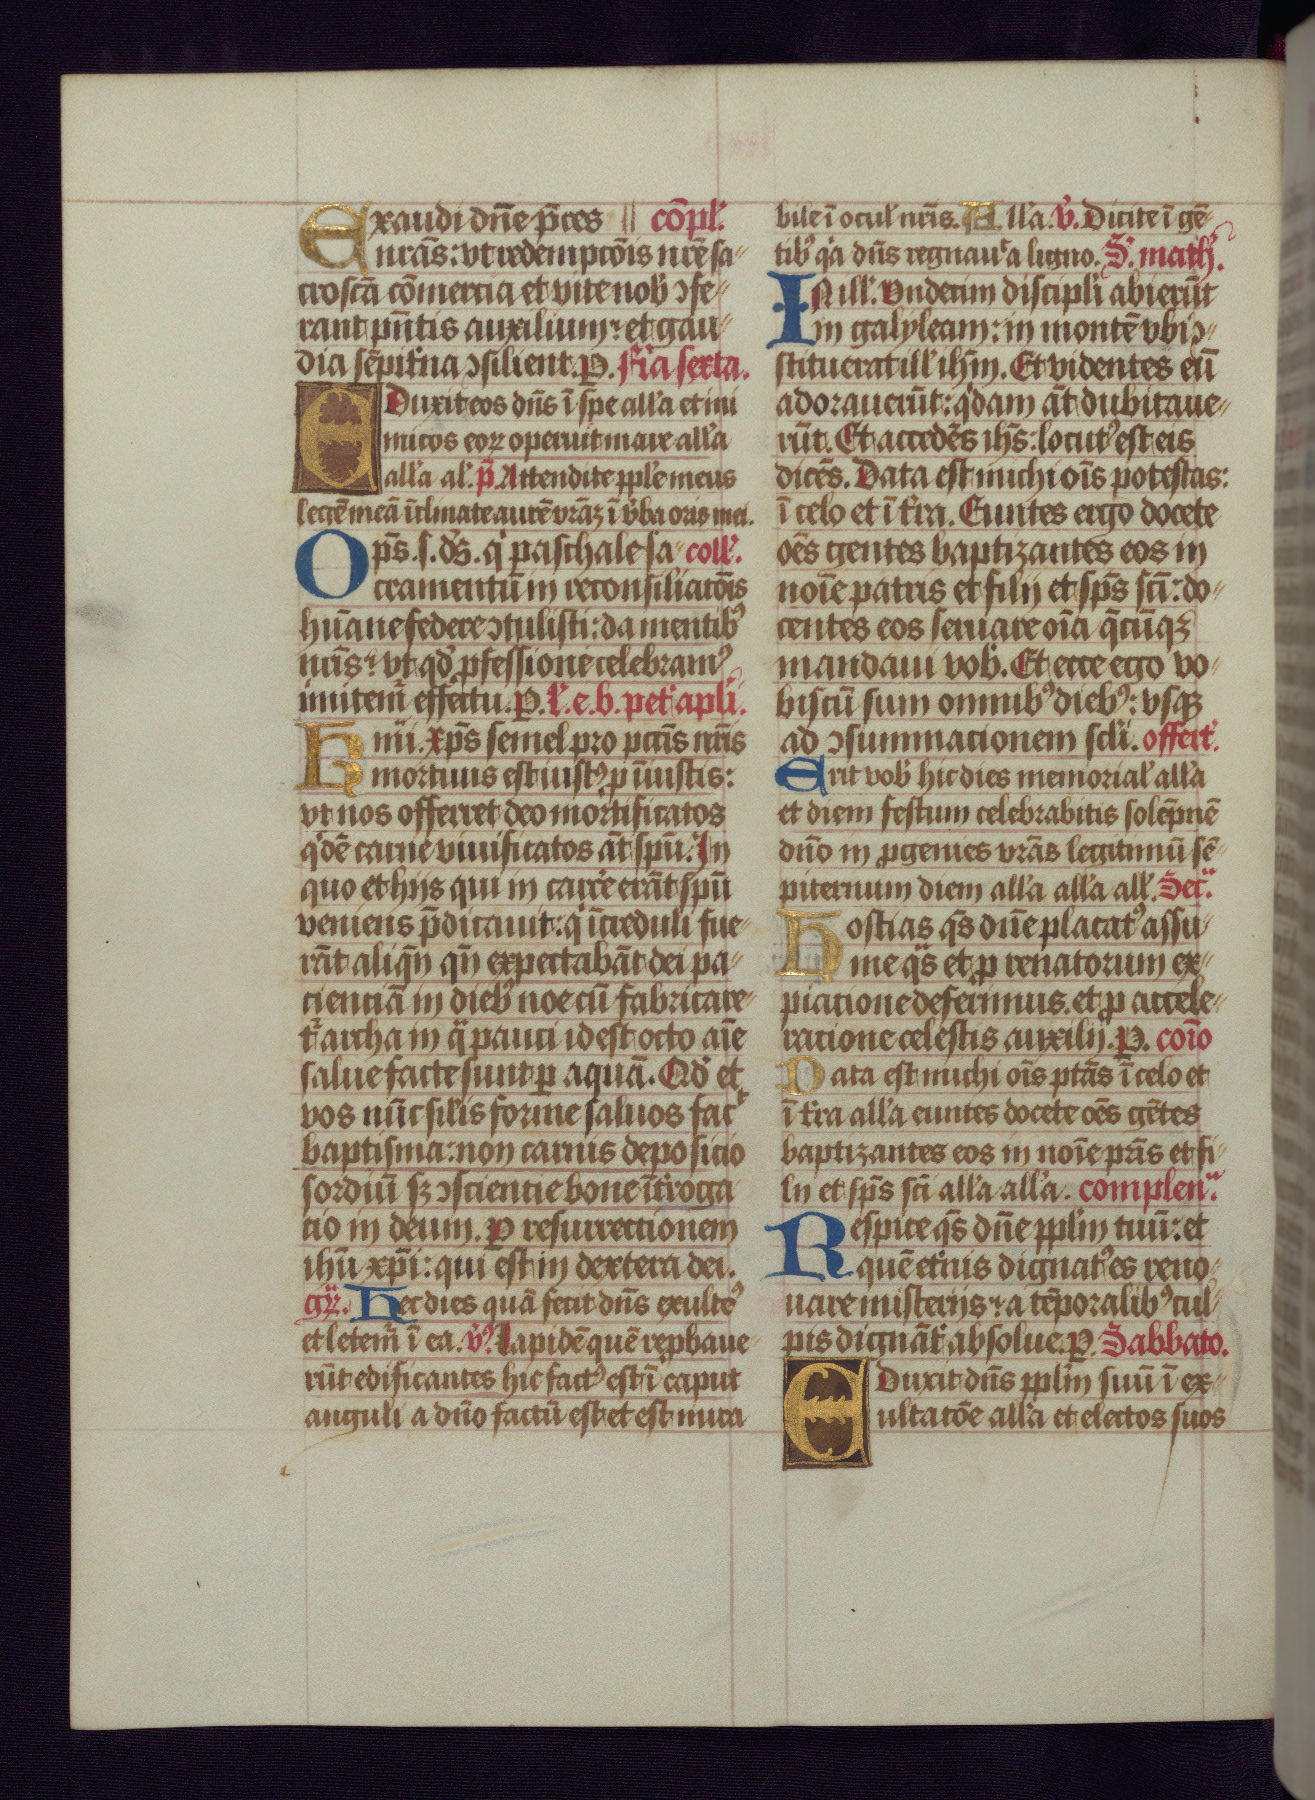 Exaudi dn̄e p̄ces cōpl'.
nr̄as: vt redempcōis nr̄e sa-
crosc̄a cōmercia et vite nob' ɔfe-
rant pn̄tis auxilium: et gau-
dia sēpit'na ɔsilient. P. Fr̄ia sexta.
EDuxit eos dn̄s ī spe all'a et ini
micos eoꝝ operuit mare all'a
all'a al'. p̄. Attendite pp̄le meus
legē meā īclinate aurē vr̄aꝫ ī v'ba oris mei.
Op̄s. s. ds̄. q' paschale sa- coll'.
cramentū in reconsiliatōis
hūane federe ɔtulisti: da mentib9
nr̄is: vt qd' ꝓfessione celebram9
imitem̄ effectu. P. l'. e. b. pet' apl'i.
Kmi. xp̄s semel pro pctīs nr̄is
mortuus est iust9 ꝓ īiustis:
vt nos offerret deo mortificatos
q'dē carne viuificatos āt spū. In
quo et hiis qui in carc'e erāt spū
veniens p̄dicauit: q' īcreduli fue-
rāt aliqn̄ qn̄ expectabāt dei pa-
cienciā in dieb' noe cū fabricare-
t' archa in qa pauci id est octo aīe
salue facte sunt ꝑ aquā. Qd' et
vos nūc silīs forme saluos fac't
baptisma: non carnis deposicio
sordiū sꝫ ɔsciencie bone īt'roga
cio in deum. P resurrectionem
ihū xp̄i: qui est in dextera dei.
gr̄. Hec dies quā fecit dn̄s exultem9
et letem̄ ī ea. v̄9. Lapidē quē repbaue-
rūt edificantes hic fact9 est ī caput
anguli a dn̄o factū est et est mira
bile ī ocul' nr̄is. All'a. v̄. Dicite ī gē-
tib9 q'a dn̄s regnauit a ligno. S'. math'.
IN ill'. Vndecim discipli abierūt
in galyleam: in montē vbi ɔ-
stituerat ill' ihm̄. Et videntes eū
adorauerūt: q'dam āt dubitaue-
rūt. Et accedēs ihs̄: locut9 est eis
dicēs. Data est michi oīs potestas:
ī celo et ī t'ra. Euntes ergo docete
oēs gentes baptizantes eos in
noīe patris et filij et sps̄ scī: do-
centes eos seruare oīa q̄cūqꝫ
mandaui vob'. Et ecce ego vo-
biscū sum omnib9 dieb9: vsqꝫ
ad ɔsummacionem scl'i. offert'.
Erit vob' hic dies memorial' all'a
et diem festum celebrabitis solēpnē
dn̄o in ꝓgenies vr̄as legitimū sē-
piternum diem all'a all'a all'. Sec'a.
Hostias qs̄ dn̄e placat9 assu-
me qs̄ et ꝓ renatorum ex-
piacione deferimus. et ꝓ accele-
racione celestis auxilij. P. coīo
Data est michi oīs ptās ī celo et
ī t'ra all'a euntes docete oēs gētes
baptizantes eos in noīe pr̄is et fi-
lij et sps̄ scī all'a all'a. complen'a.
Respice qs̄ dn̄e pplm̄ tuū: et
quē et'nis dignat9 es reno-
uare misterijs: a tēporalib9 cul-
pis dignāt' absolue. P. Sabbato.
EDuxit dn̄s pplm̄ suū ī ex-
ultatōe all'a et electos suos